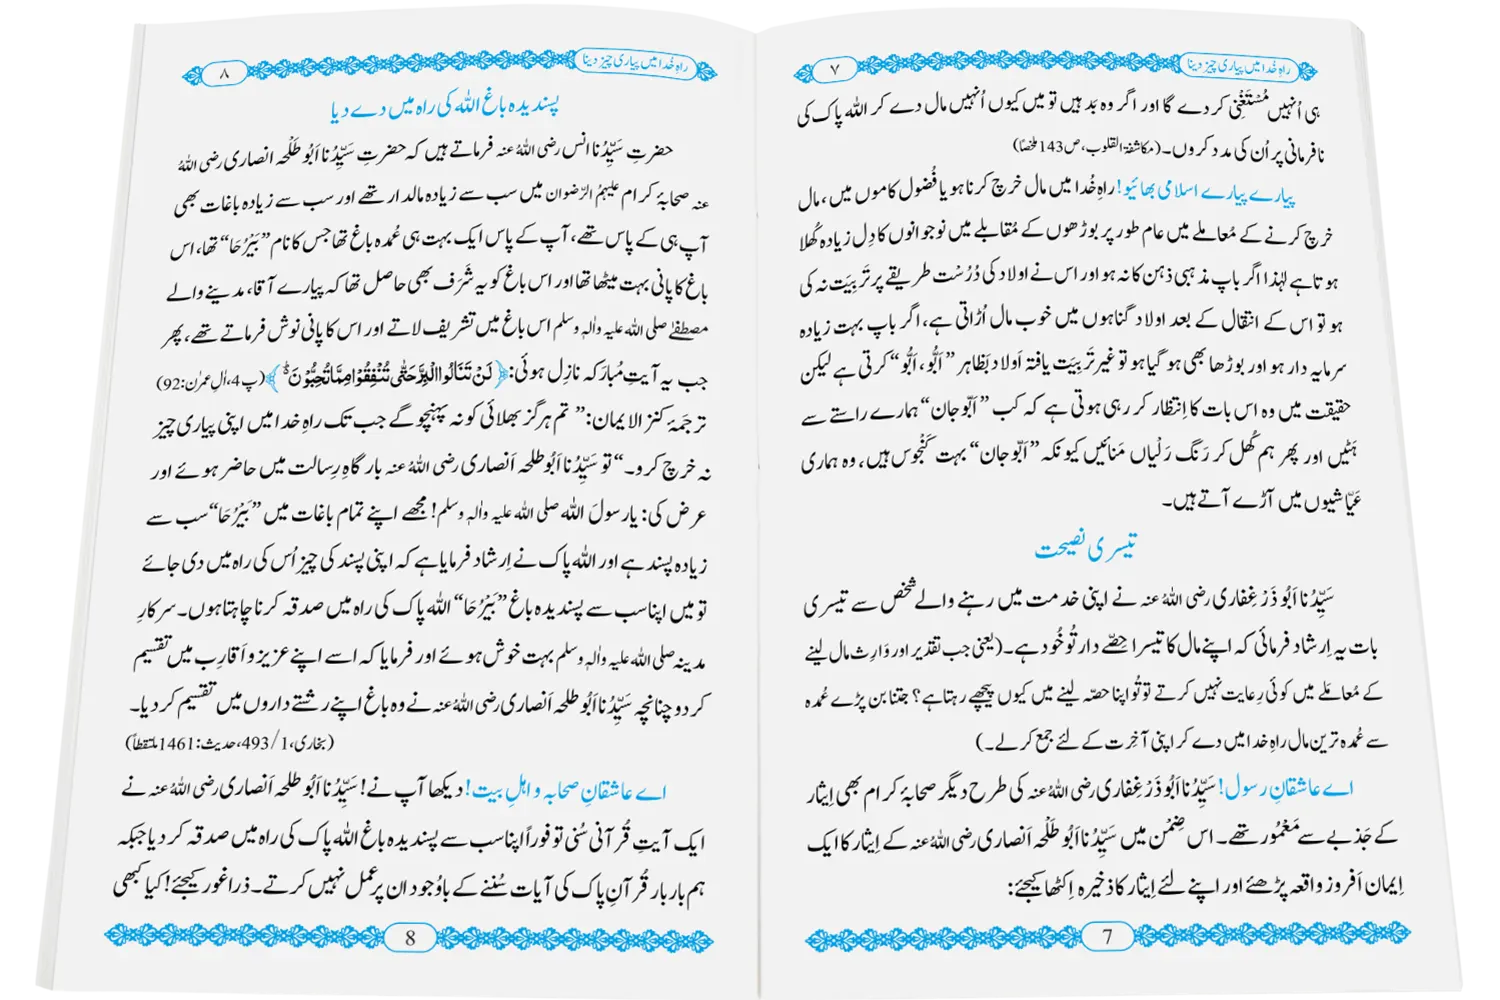 راہِ خُدا میں پیاری چیز دینا
۷
ہی اُنہیں مُسْتَغْنِی کر دے گا اور اگر وہ بَد ہیں تو میں کیوں اُنہیں مال دے کر اللہ پاک کی
نافرمانی پر اُن کی مدد کروں۔ (مکاشفۃ القلوب، ص143 ملخصاً)
پیارے پیارے اسلامی بھائیو! راہِ خُدا میں مال خرچ کرنا ہو یا فُضول کاموں میں، مال
خرچ کرنے کے مُعاملے میں عام طور پر بوڑھوں کے مُقابلے میں نوجوانوں کا دِل زیادہ کُھلا
ہوتا ہے لہٰذا اگر باپ مذہبی ذہن کا نہ ہو اور اس نے اولاد کی دُرُسْت طریقے پر تَربِیَت نہ کی
ہو تو اس کے انتقال کے بعد اولاد گناہوں میں خوب مال اُڑاتی ہے، اگر باپ بہت زیادہ
سرمایہ دار ہو اور بوڑھا بھی ہو گیا ہو تو غیر تَربِیَت یافتہ اَولاد بَظاہر ”اَبُّو، اَبُّو“ کرتی ہے لیکن
حقیقت میں وہ اس بات کا اِنتظار کر رہی ہوتی ہے کہ کب ”ابّو جان“ ہمارے راستے سے
ہَٹیں اور پھر ہم کُھل کر رَنگ رَلیاں مَنائیں کیونکہ ”ابّو جان“ بہت کَنْجُوس ہیں، وہ ہماری
عَیّاشیوں میں آڑے آتے ہیں۔
تیسری نصیحت
سَیِّدُنا اَبُو ذَر غِفاری رضی اللہُ عنہ نے اپنی خدمت میں رہنے والے شخص سے تیسری
بات یہ اِرشاد فرمائی کہ اپنے مال کا تیسرا حِصّے دار تُو خُود ہے۔ (یعنی جب تقدیر اور وَارِث مال لینے
کے مُعامَلے میں کوئی رعایت نہیں کرتے تو تُو اپنا حصّہ لینے میں کیوں پیچھے رہتا ہے؟ جتنا بن پڑے عُمدہ
سے عُمدہ ترین مال راہِ خدا میں دے کر اپنی آخِرت کے لئے جمع کر لے۔)
اے عاشقانِ رسول! سَیِّدُنا اَبُو ذَر غِفاری رضی اللہُ عنہ کی طرح دیگر صحابۂ کرام بھی اِیثار
کے جَذبے سے مَعْمُور تھے۔ اس ضِمْن میں سَیِّدُنا اَبُو طَلْحَہ اَنصاری رضی اللہُ عنہ کے اِیثار کا ایک
اِیمان اَفروز واقعہ پڑھئے اور اپنے لئے اِیثار کا ذَخیرہ اِکٹھا کیجئے:
7
راہِ خُدا میں پیاری چیز دینا
۸
پسندیدہ باغ اللہ کی راہ میں دے دیا
حضرتِ سَیِّدُنا انس رضی اللہُ عنہ فرماتے ہیں کہ حضرتِ سَیِّدُنا اَبُو طَلْحَہ انصاری رضی اللہُ
عنہ صحابۂ کرام علیہمُ الرّضوان میں سب سے زیادہ مالدار تھے اور سب سے زیادہ باغات بھی
آپ ہی کے پاس تھے، آپ کے پاس ایک بہت ہی عُمدہ باغ تھا جس کا نام ”بَیْرُحَا“ تھا، اس
باغ کا پانی بہت میٹھا تھا اور اس باغ کو یہ شَرَف بھی حاصل تھا کہ پیارے آقا، مدینے والے
مصطفےٰ صلی اللہ علیہ واٰلہٖ وسلم اس باغ میں تشریف لاتے اور اس کا پانی نوش فرماتے تھے، پھر
جب یہ آیتِ مُبارَکہ نازِل ہوئی: ﴿لَنْ تَنَالُوا الْبِرَّ حَتّٰى تُنْفِقُوْا مِمَّا تُحِبُّوْنَ ؕ﴾ (پ4، اٰلِ عمرٰن:92)
ترجَمۂ کنز الایمان: ”تم ہرگز بھلائی کو نہ پہنچو گے جب تک راہِ خدا میں اپنی پیاری چیز
نہ خرچ کرو۔“ تو سَیِّدُنا اَبُو طلحہ اَنصاری رضی اللہُ عنہ بارگاہِ رِسالت میں حاضر ہوئے اور
عرض کی: یارسولَ اللہ صلی اللہ علیہ واٰلہٖ وسلم! مجھے اپنے تمام باغات میں ”بَیْرُحَا“ سب سے
زیادہ پسند ہے اور اللہ پاک نے اِرشاد فرمایا ہے کہ اپنی پسند کی چیز اُس کی راہ میں دی جائے
تو میں اپنا سب سے پسندیدہ باغ ”بَیْرُحَا“ اللہ پاک کی راہ میں صدقہ کرنا چاہتا ہوں۔ سرکارِ
مدینہ صلی اللہ علیہ واٰلہٖ وسلم بہت خوش ہوئے اور فرمایا کہ اسے اپنے عزیز و اَقارِب میں تقسیم
کر دو چنانچہ سَیِّدُنا اَبُو طلحہ اَنصاری رضی اللہُ عنہ نے وہ باغ اپنے رشتے داروں میں تقسیم کر دیا۔
(بخاری، 1/493، حدیث:1461 ملتقطاً)
اے عاشقانِ صحابہ و اہلِ بیت! دیکھا آپ نے! سَیِّدُنا اَبُو طلحہ اَنصاری رضی اللہُ عنہ نے
ایک آیتِ قُرآنی سُنی تو فوراً اپنا سب سے پسندیدہ باغ اللہ پاک کی راہ میں صدقہ کر دیا جبکہ
ہم بار بار قُرآنِ پاک کی آیات سُننے کے باوُجود ان پر عمل نہیں کرتے۔ ذرا غور کیجئے! کیا کبھی
8